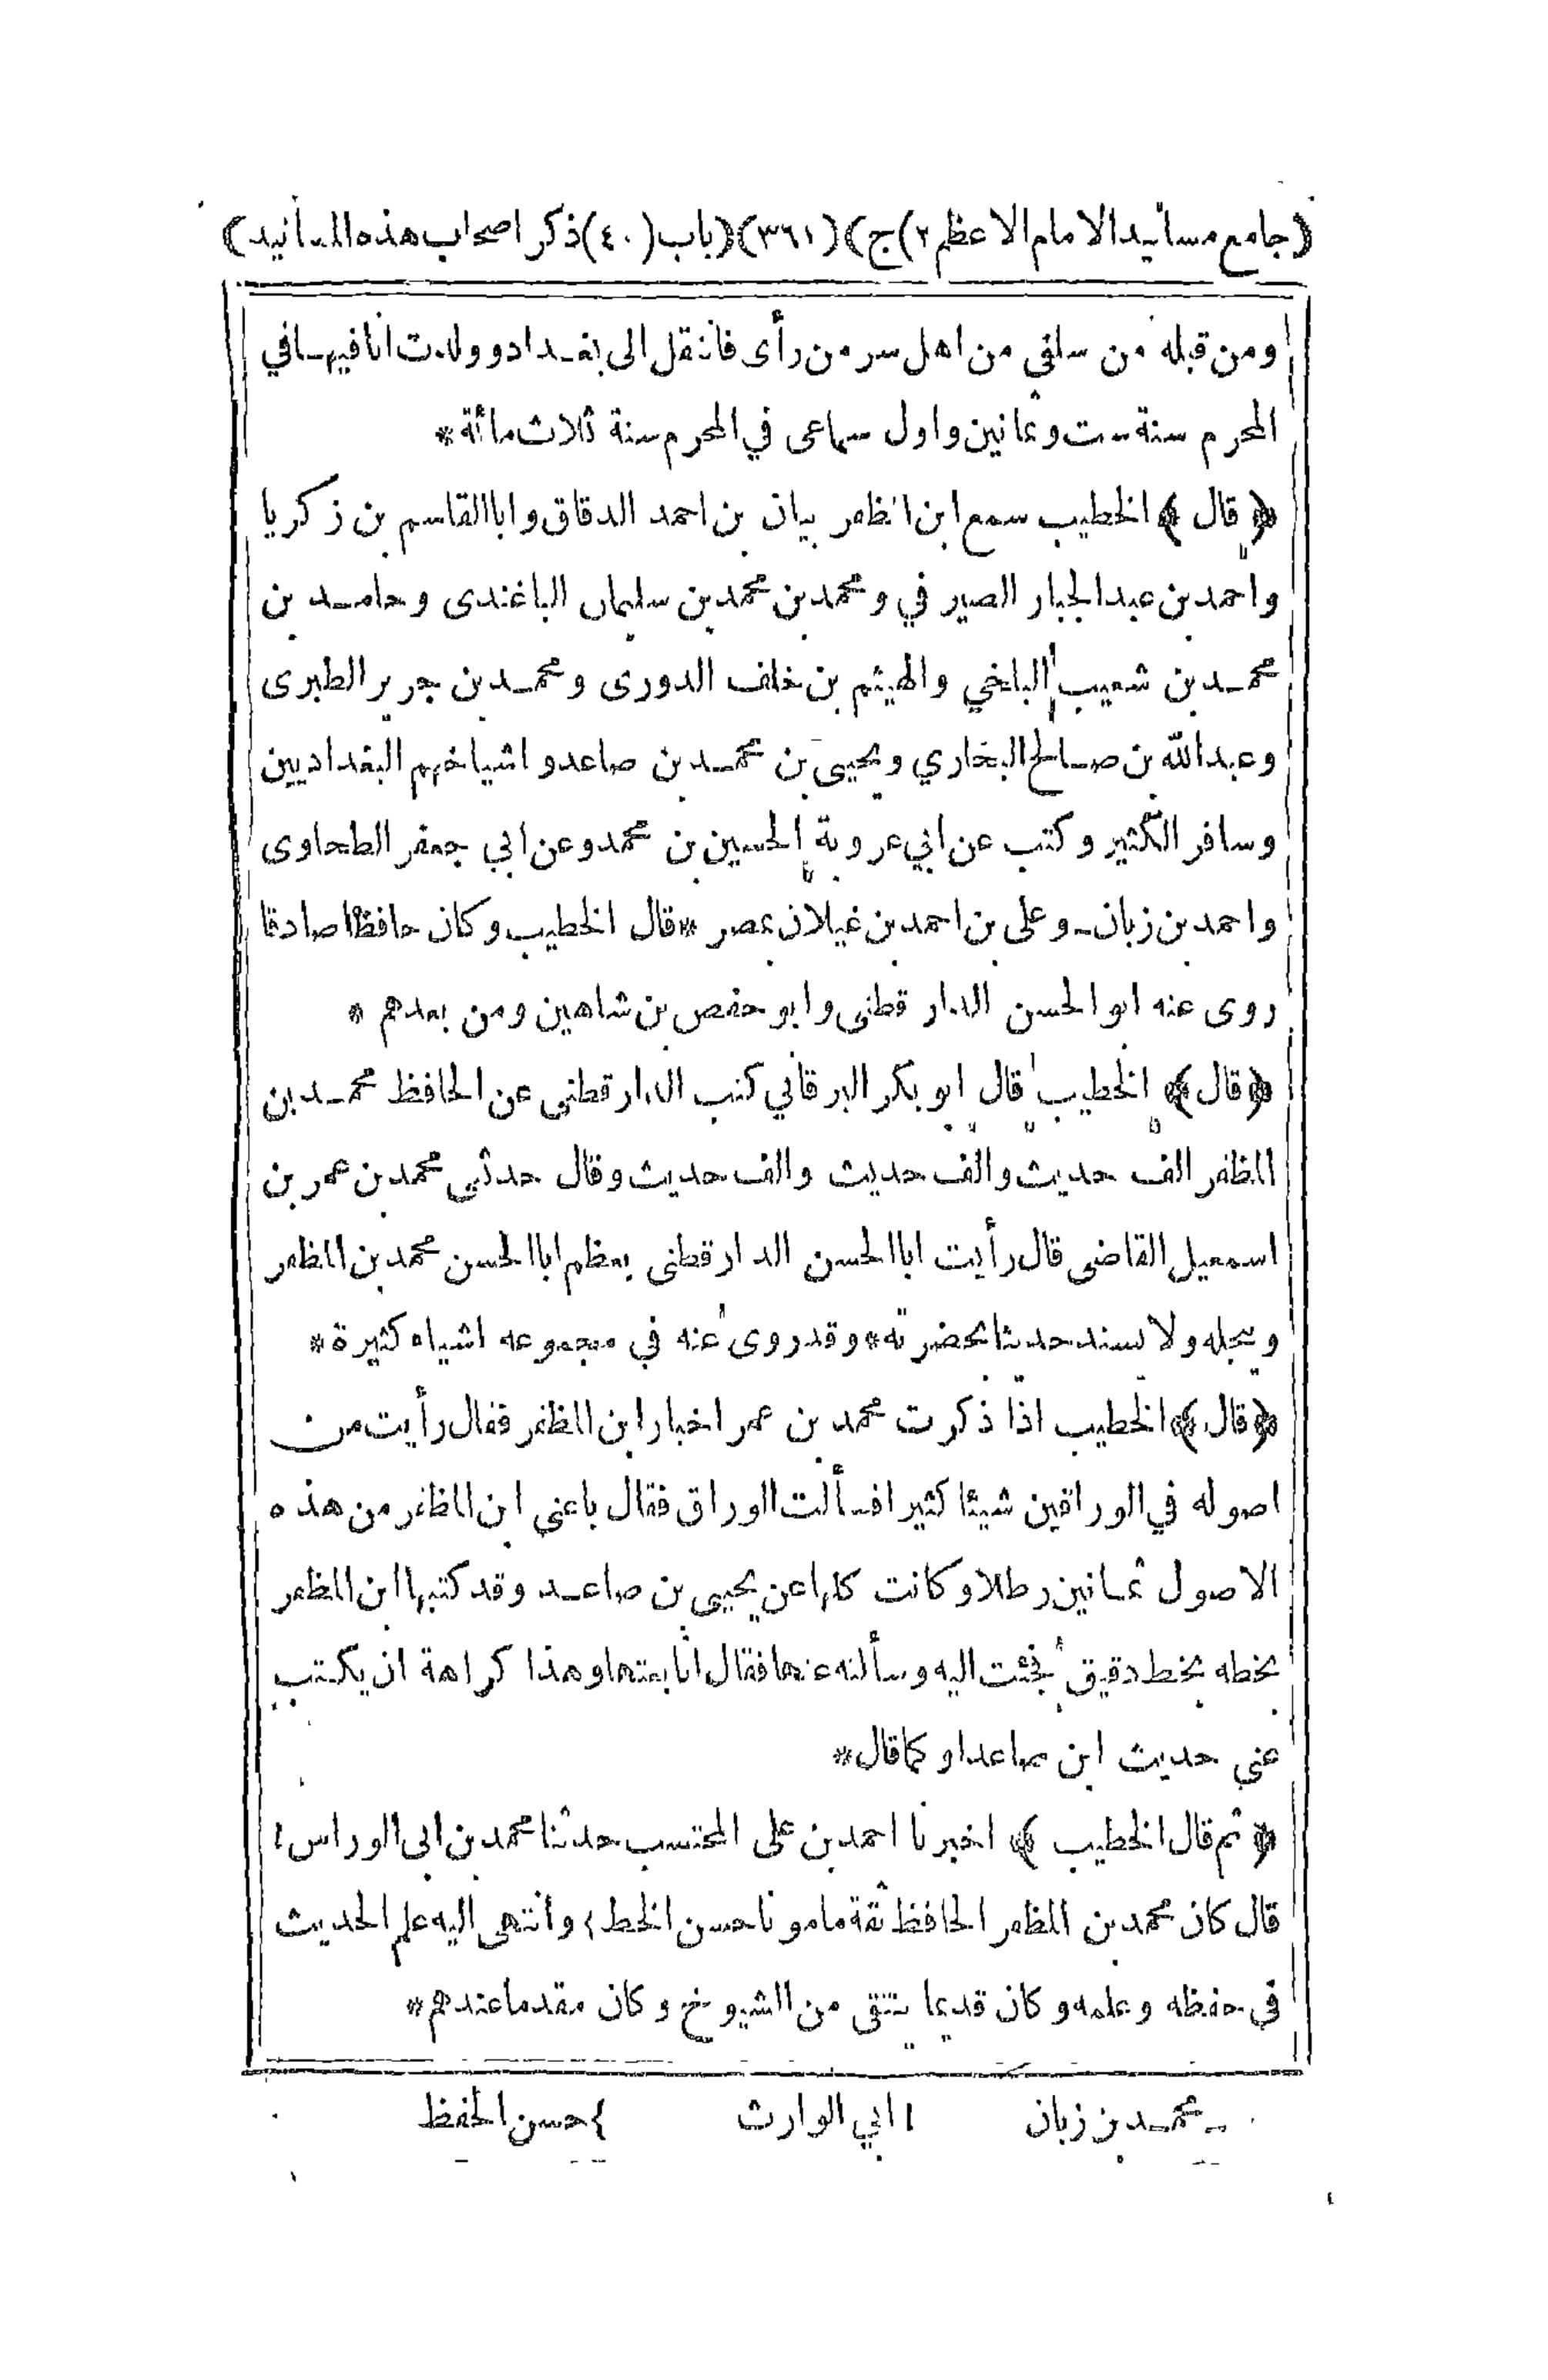 (جامع مسانيد الامام الاعظم ٢) ج) (٣٦١) (باب (٤٠) ذكر اصحاب هذه المسانيد)
ومن قبله من سلفي من اهل سر من رأى فانتقل الى بغداد وولدت انا فيها في
المحرم سنة ست وثمانين واول سماعى في المحرم سنة ثلاث مائة *
﴿ قال ﴾ الخطيب سمع ابن المظفر بيان بن احمد الدقاق وابا القاسم بن زكريا
واحمد بن عبد الجبار الصير في ومحمد بن محمد بن سليمان الباغندى وحامد بن
محمد بن شعيب البلخي والهيثم بن خلف الدورى ومحمد بن جرير الطبرى
وعبد الله بن صالح البخاري ويحيى بن محمد بن صاعد واشياخهم البغداديين
وسافر الكثير وكتب عن ابي عروبة الحسين بن محمد وعن ابي جعفر الطحاوى
واحمد بن زبان ـ وعلى بن احمد بن غيلان بمصر * قال الخطيب وكان حافظا صادقا
روى عنه ابو الحسن الدار قطنى وابو حفص بن شاهين ومن بعدهم *
﴿ قال ﴾ الخطيب قال ابو بكر البرقاني كتب الدار قطنى عن الحافظ محمد بن
المظفر الف حديث والف حديث والف حديث وقال حدثني محمد بن عمر بن
اسمعيل القاضى قال رأيت ابا الحسن الدار قطنى يعظم ابا الحسن محمد بن المظفر
ويجله ولا يسند حديثا بحضرته * وقد روى عنه في مجموعه اشياء كثيرة *
﴿ قال ﴾ الخطيب اذا ذكرت محمد بن عمر اخبار ابن المظفر فقال رأيت من
اصوله في الوراقين شيئا كثيرا فسألت الوراق فقال باعني ابن المظفر من هذه
الاصول ثمانين رطلا وكانت كلها عن يحيى بن صاعد وقد كتبها ابن المظفر
بخطه بخط دقيق فجئت اليه وسألته عنها فقال انا بعتها وهذا كراهة ان يكتب
عني حديث ابن صاعد او كما قال *
﴿ ثم قال الخطيب ﴾ اخبرنا احمد بن على المحتسب حدثنا محمد بن ابى الوراس ١
قال كان محمد بن المظفر الحافظ ثقة مامونا حسن الخط } وانتهى اليه علم الحديث
في حفظه وعلمه وكان قديما ينتقى من الشيوخ وكان مقدما عندهم *
ـ محمد بن زبان ١ ابي الوارث } حسن الحفظ